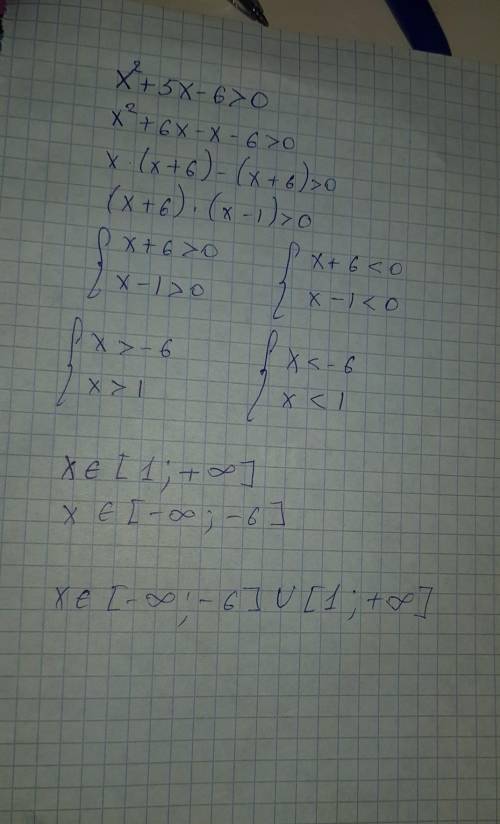 x²+5x-6>0
x²+6x-x-6>0
x·(x+6)-(x+6)>0
(x+6)·(x-1)>0
{ x+6>0 { x+6<0
x-1>0 x-1<0
{ x>-6 { x<-6
x>1 x<1
x∈[1;+∞]
x∈[-∞;-6]
x∈[-∞;-6]∪[1;+∞]